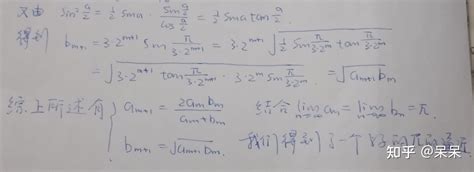 又由 sin²a/2 = 1/2 sina · (sin a/2)/(cos a/2) = 1/2 sina tan a/2
得到 b_{m+1} = 3·2^{m+1} sin π/(3·2^{m+1}) = 3·2^{m+1} √(1/2 sin π/(3·2^m) tan π/(3·2^{m+1}))
= √(3·2^{m+1} tan π/(3·2^{m+1}) · 3·2^m sin π/(3·2^m)) = √(a_{m+1} b_m)
综上所述有 { a_{m+1} = 2a_m b_m/(a_m+b_m) 结合 lim_{n→∞} a_n = lim_{n→∞} b_n = π,
b_{m+1} = √(a_{m+1} b_m) 我们得到了一个好的π的
知乎 @呆呆